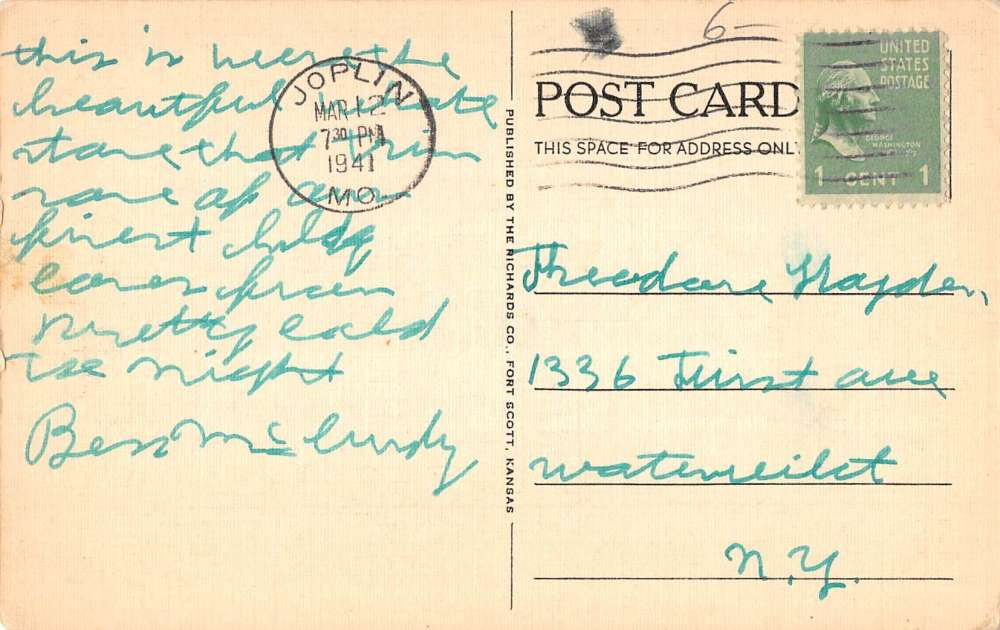 this is where the
beautiful white
stone that trim
some of our
finest bldg
comes from
pretty cold
to night
Bess McCurdy
JOPLIN
MAR 12
7 30 PM
1941
MO.
PUBLISHED BY THE RICHARDS CO., FORT SCOTT, KANSAS
6-
POST CARD
THIS SPACE FOR ADDRESS ONL
UNITED
STATES
POSTAGE
GEORGE
WASHINGTON
1 CENT 1
Theodore Hayden,
1336 First ave
Watervliet
N.Y.